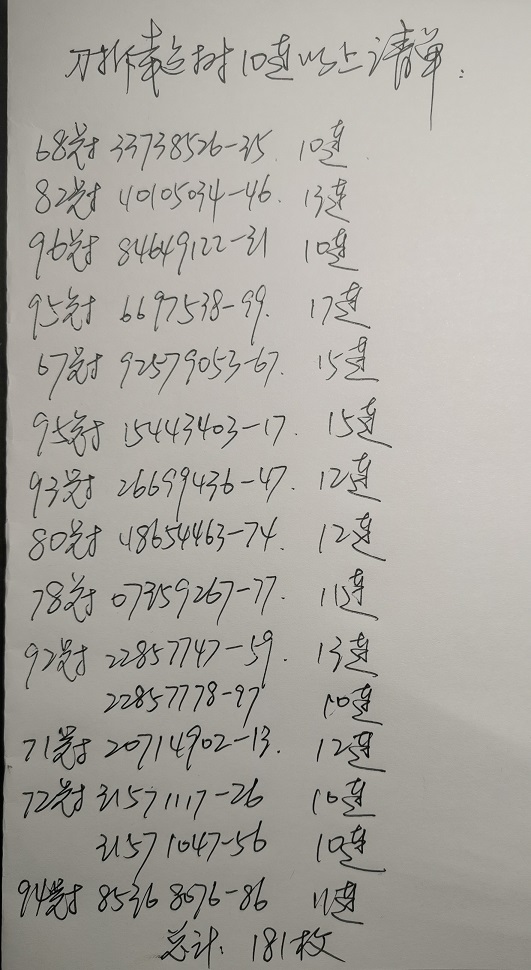 刀拆幸运树10连以上清单:
68冠 33738526-35 10连
82冠 40105034-46. 13连
96冠 84649122-31 10连
95冠 6697538-99. 17连
67冠 92579053-67. 15连
95冠 15443403-17. 15连
93冠 26699436-47. 12连
80冠 48654463-74. 12连
78冠 07359267-77. 11连
92冠 22857747-59. 13连
22857778-97 10连
71冠 20714902-13. 12连
72冠 31571117-26 10连
31571047-56 10连
94冠 85368676-86 11连
总计: 181枚